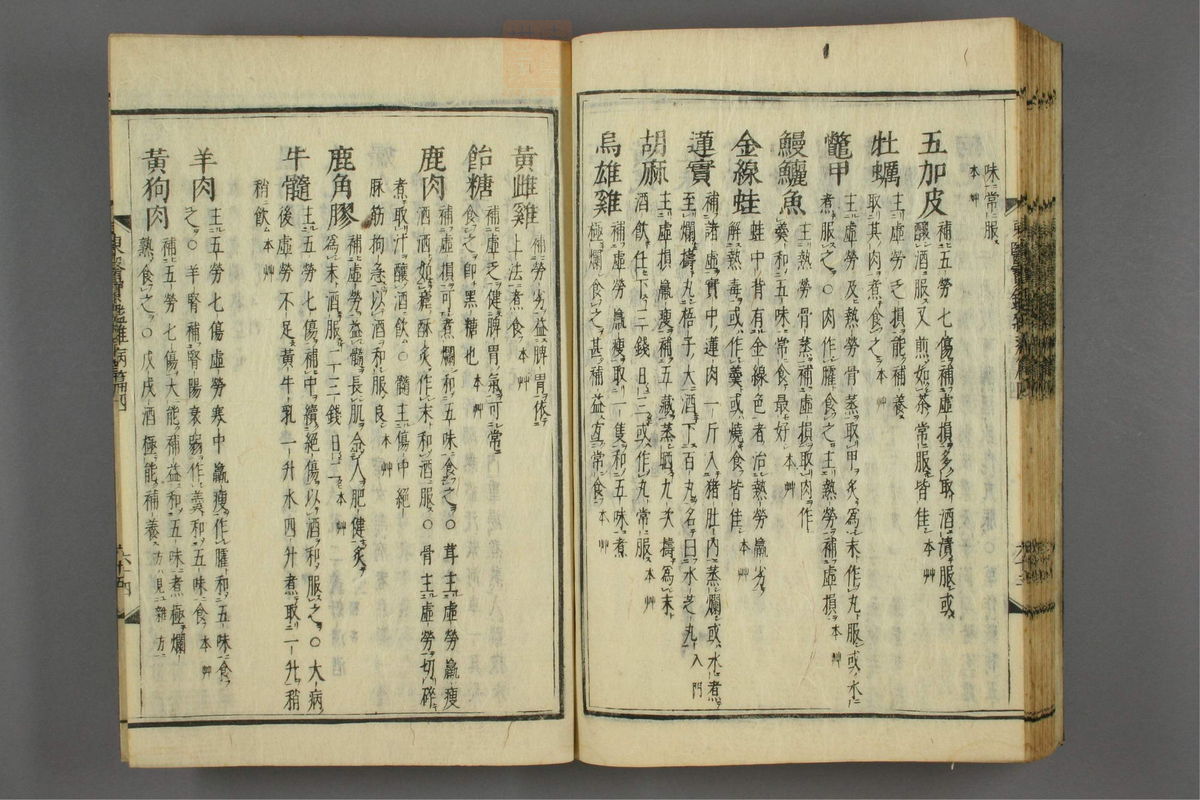 味常服
本艸
五加皮
補五勞七傷補虛損多取酒漬服或
釀酒服又煎如茶常服皆佳 本艸
牡蠣
主虛勞乏損能補養
取其肉煮食之 本艸
鼈甲
主虛勞及熱勞骨蒸取甲炙爲末作丸服或水
煮服之○肉作臛食之主熱勞補虛損 本艸
鰻鱺魚
主熱勞骨蒸補虛損取肉作
羹和五味常食最好 本艸
金線蛙
蛙中背有金線色者治熱勞羸劣
解熱毒或作羹或燒食皆佳 本艸
蓮實
補諸虛實中蓮肉一斤入猪肚內蒸爛或水煮
至爛擣丸梧子大酒下百丸名曰水芝丸 入門
胡麻
主虛損羸瘦補五藏蒸曬九次擣爲末
酒飮任下三錢日三或作丸常服 本艸
烏雄雞
補虛勞羸瘦取一隻和五味煮
極爛食之甚補益方常食 本艸
黃雌雞
補勞劣益脾胃依
上法煮食 本艸
飴糖
補虛乏健脾胃氣可常
食之卽黑糖也 本艸
鹿肉
補虛損可煮爛和五味食之○茸主虛勞羸瘦
酒洒如麄酥炙作末和酒服○骨主虛勞切碎
煮取汁釀酒飮○髓主傷中絕
脉筋拘急以酒和服良 本艸
鹿角膠
補虛勞益髓長肌令人肥健炙
爲末酒服二三錢日二 本艸
牛髓
主五勞七傷補中續絕傷以酒和服之○大病
後虛勞不足黃牛乳一升水四升煮取一升稍
稍飮 本艸
羊肉
主五勞七傷虛勞寒中羸瘦作臛和五味食
之○羊腎補腎陽衰弱作羹和五味食 本艸
黃狗肉
補五勞七傷大能補益和五味煮極爛
熟食之○戊戌酒極能補養 方見雜方
東醫寶鑑雜病篇四
六十四